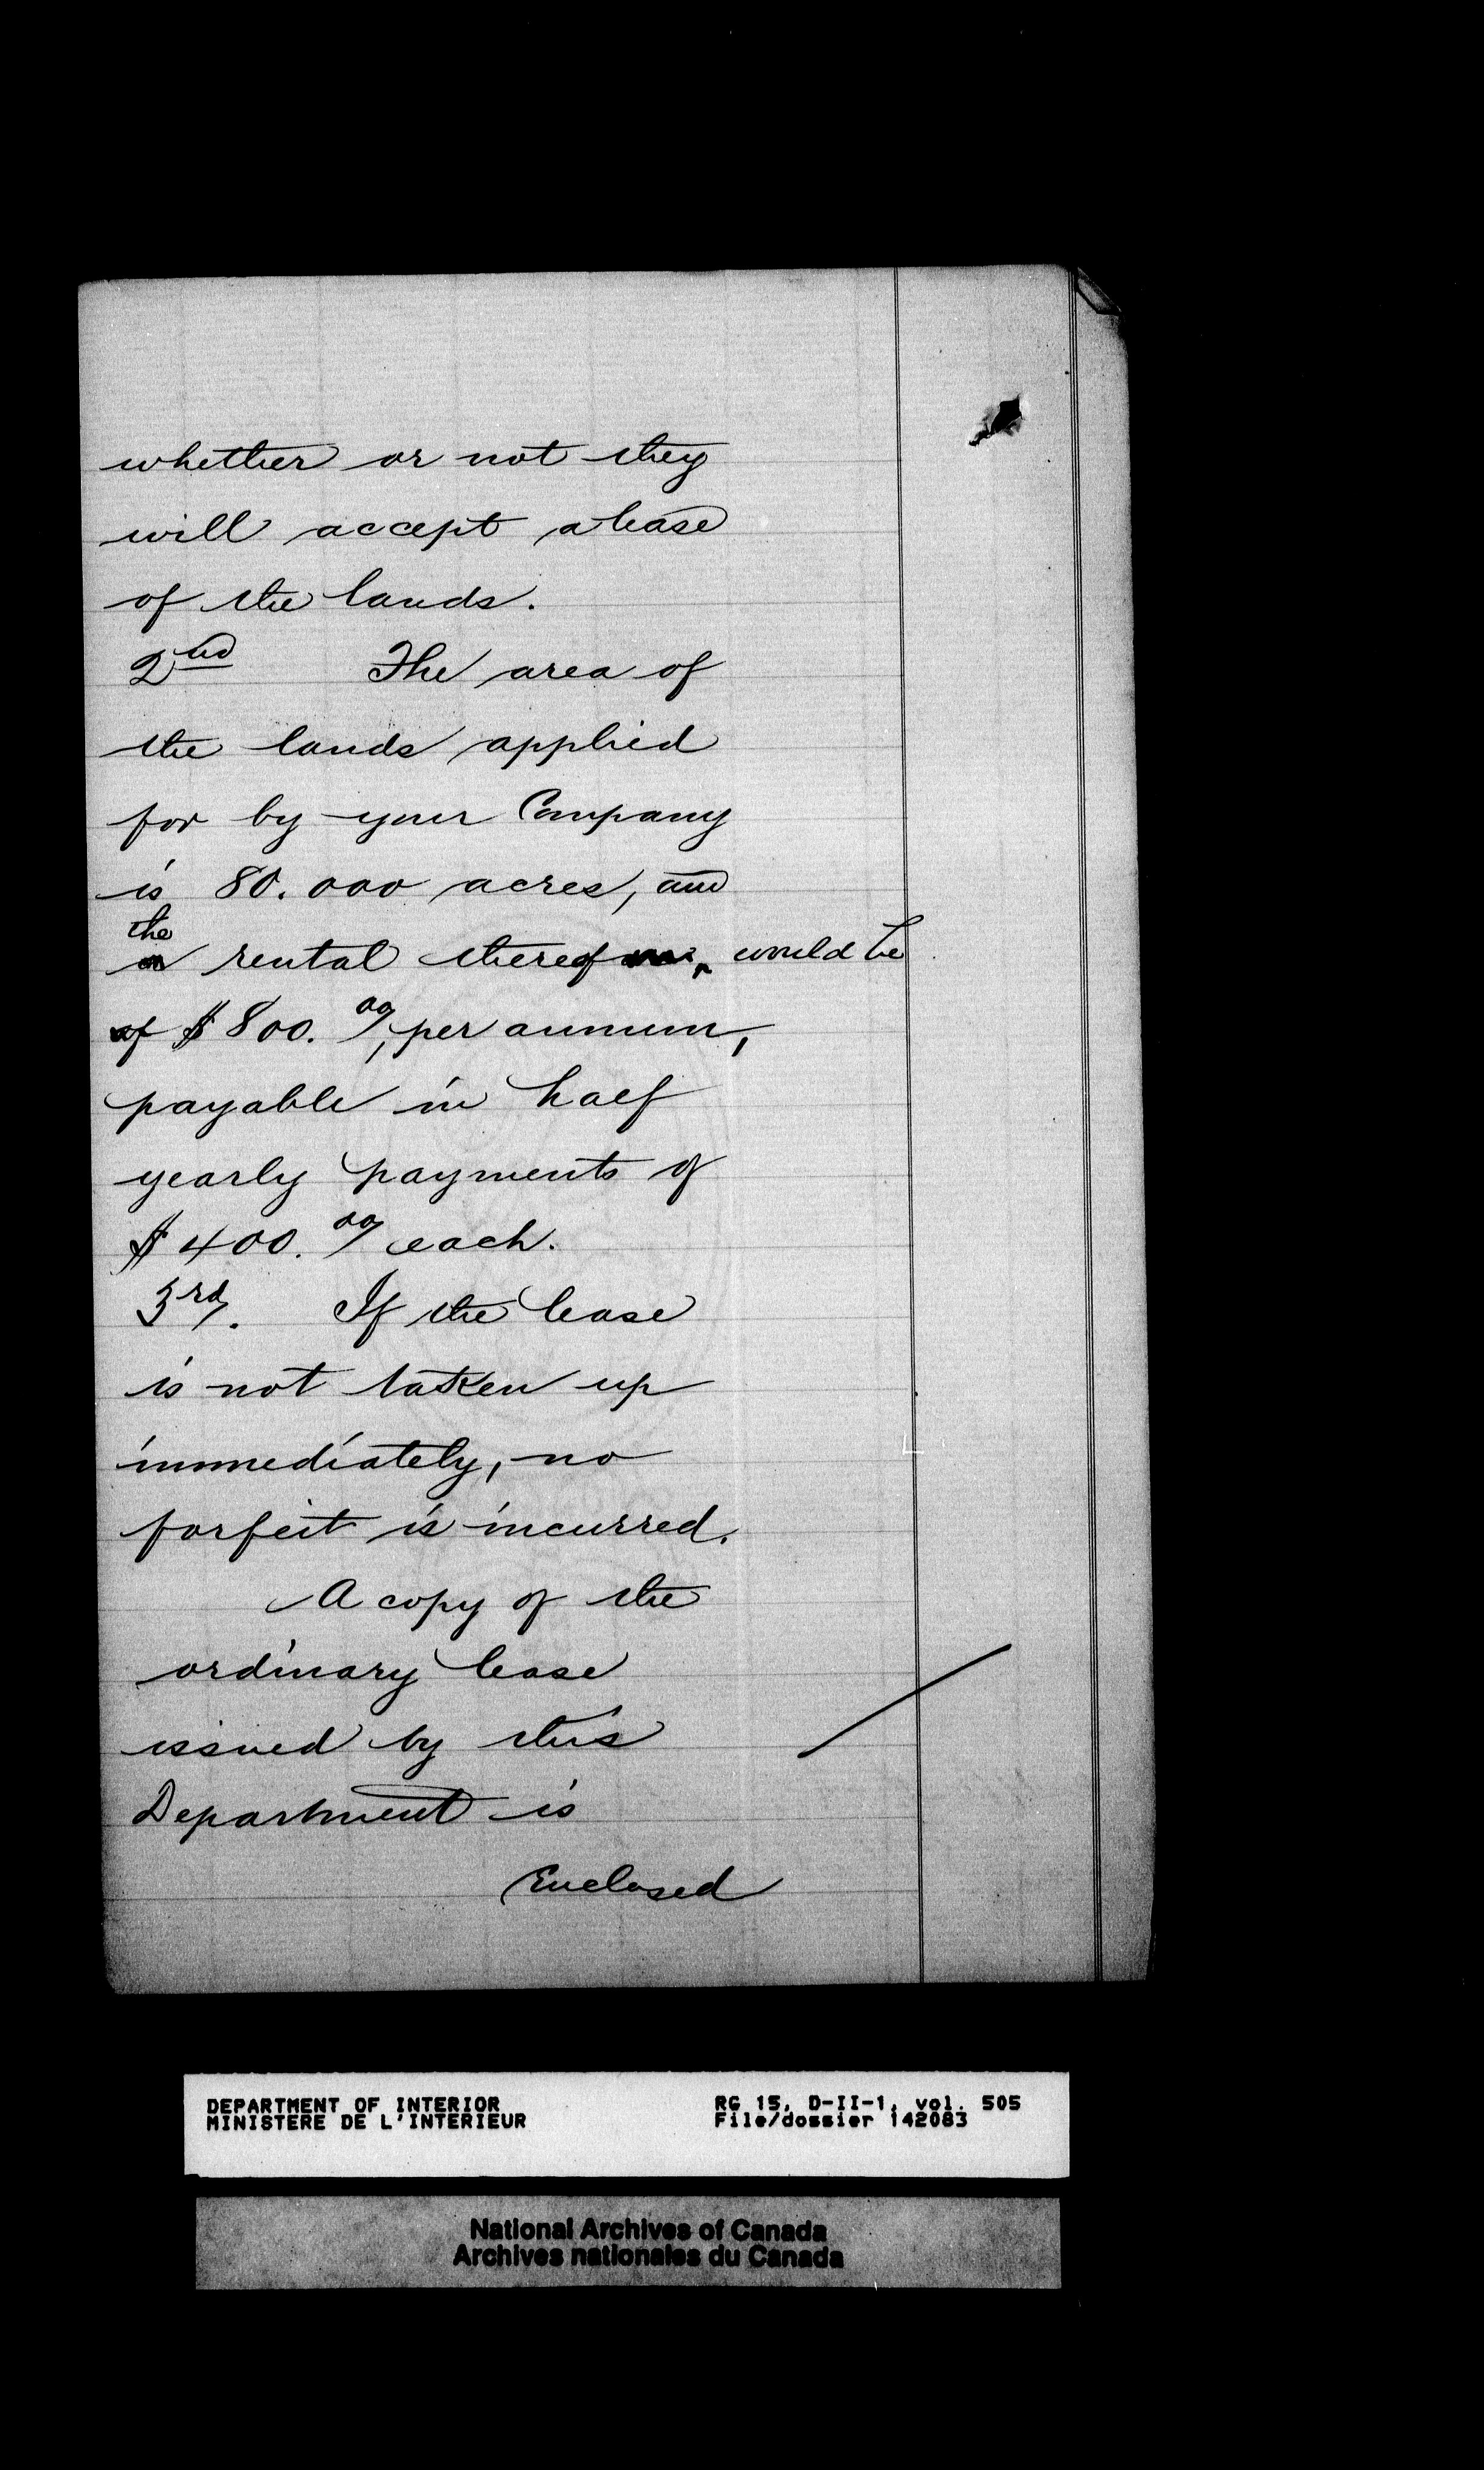 whether or not they
will accept a lease
of the lands.
2nd The area of
the lands applied
for by your Company
is 80.000 acres, and
the
rental thereof would be
of $800.00/, per annum,
payable in half
yearly payments of
$400.00/ each.
3rd/. If the lease
is not taken up
immediately, no
forfeit is incurred.
A copy of the
ordinary lease
issued by this
Department is
Enclosed
DEPARTMENT OF INTERIOR
MINISTERE DE L'INTERIEUR
RG 15, D-II-1, vol. 505
File/dossier 142083
National Archives of Canada
Archives nationales du Canada